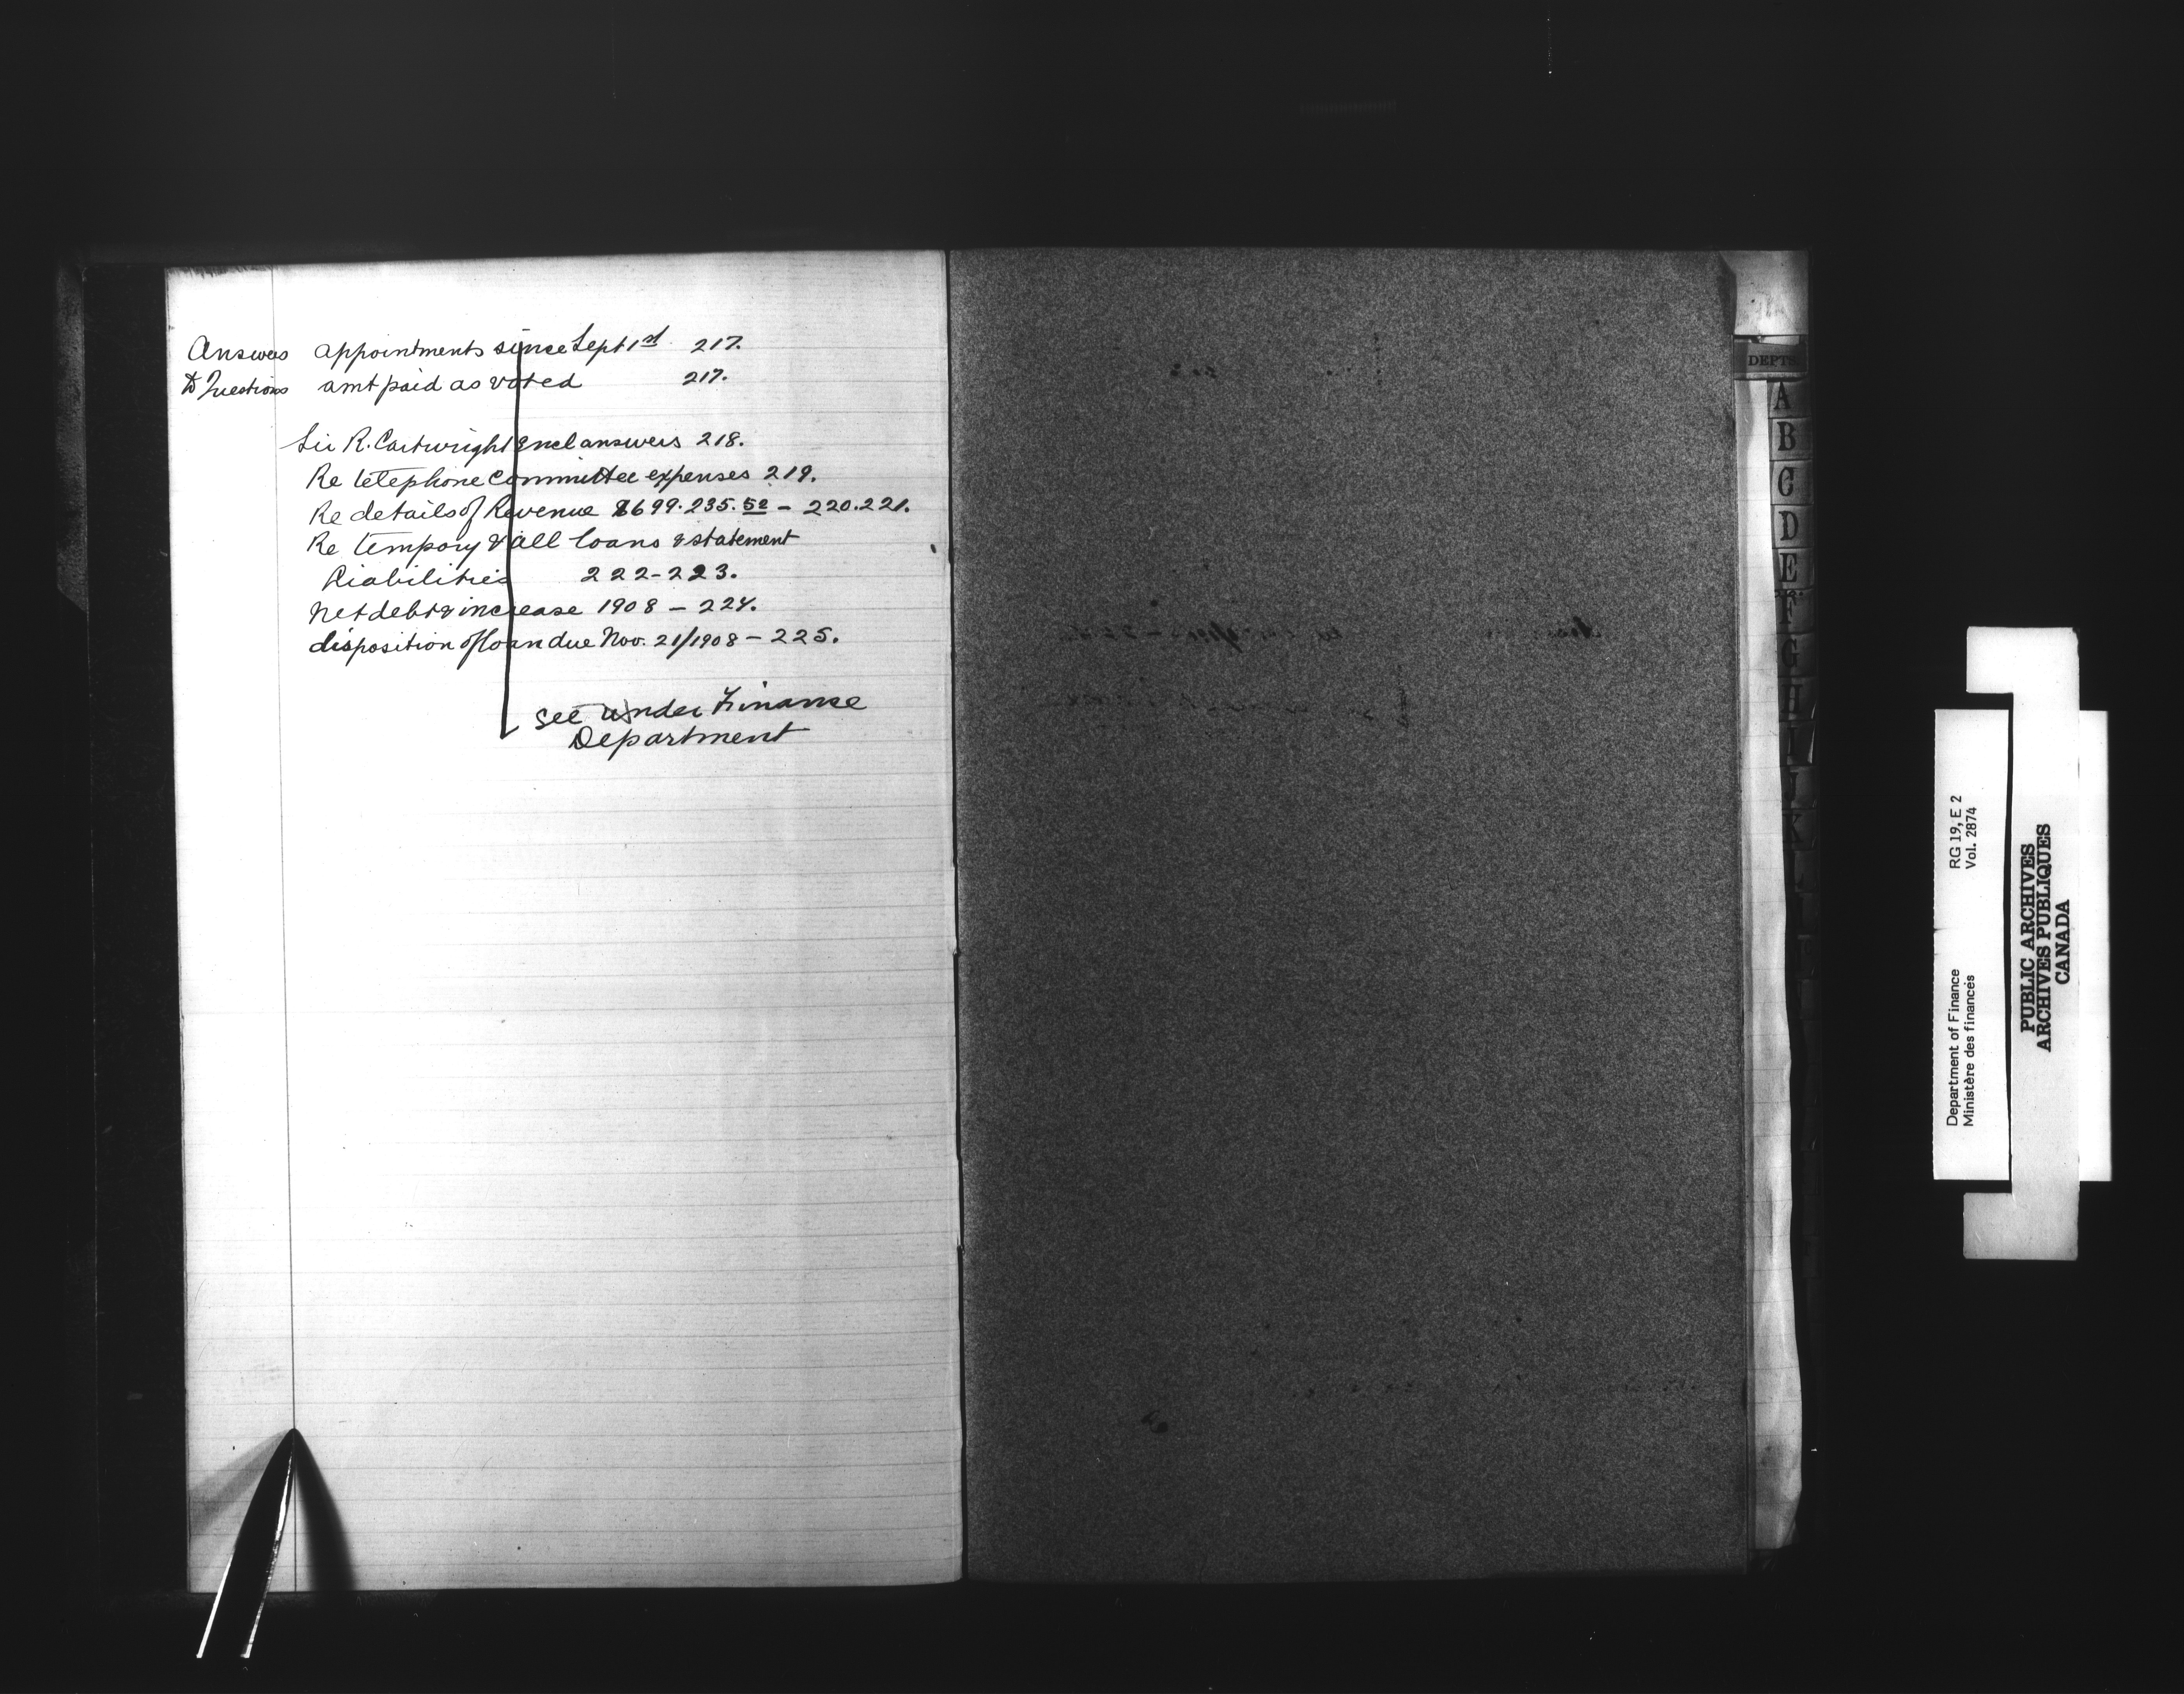 Answers appointments since Sept 1st 217.
to Questions amt paid as voted 217.
Sir R. Cartwright encl answers 218.
Re telephone committee expenses 219.
Re details of Revenue $699.235.52 - 220.221.
Re tempory & all loans & statement
Liabilities 222-223.
Net debt & increase 1908 - 224.
disposition of loan due Nov. 21/1908 - 225.
See under Finance
Department
DEPTS.
A
B
C
D
E
F
G
H
I
J
K
L
Department of Finance RG 19, E 2
Ministère des finances Vol. 2874
PUBLIC ARCHIVES
ARCHIVES PUBLIQUES
CANADA